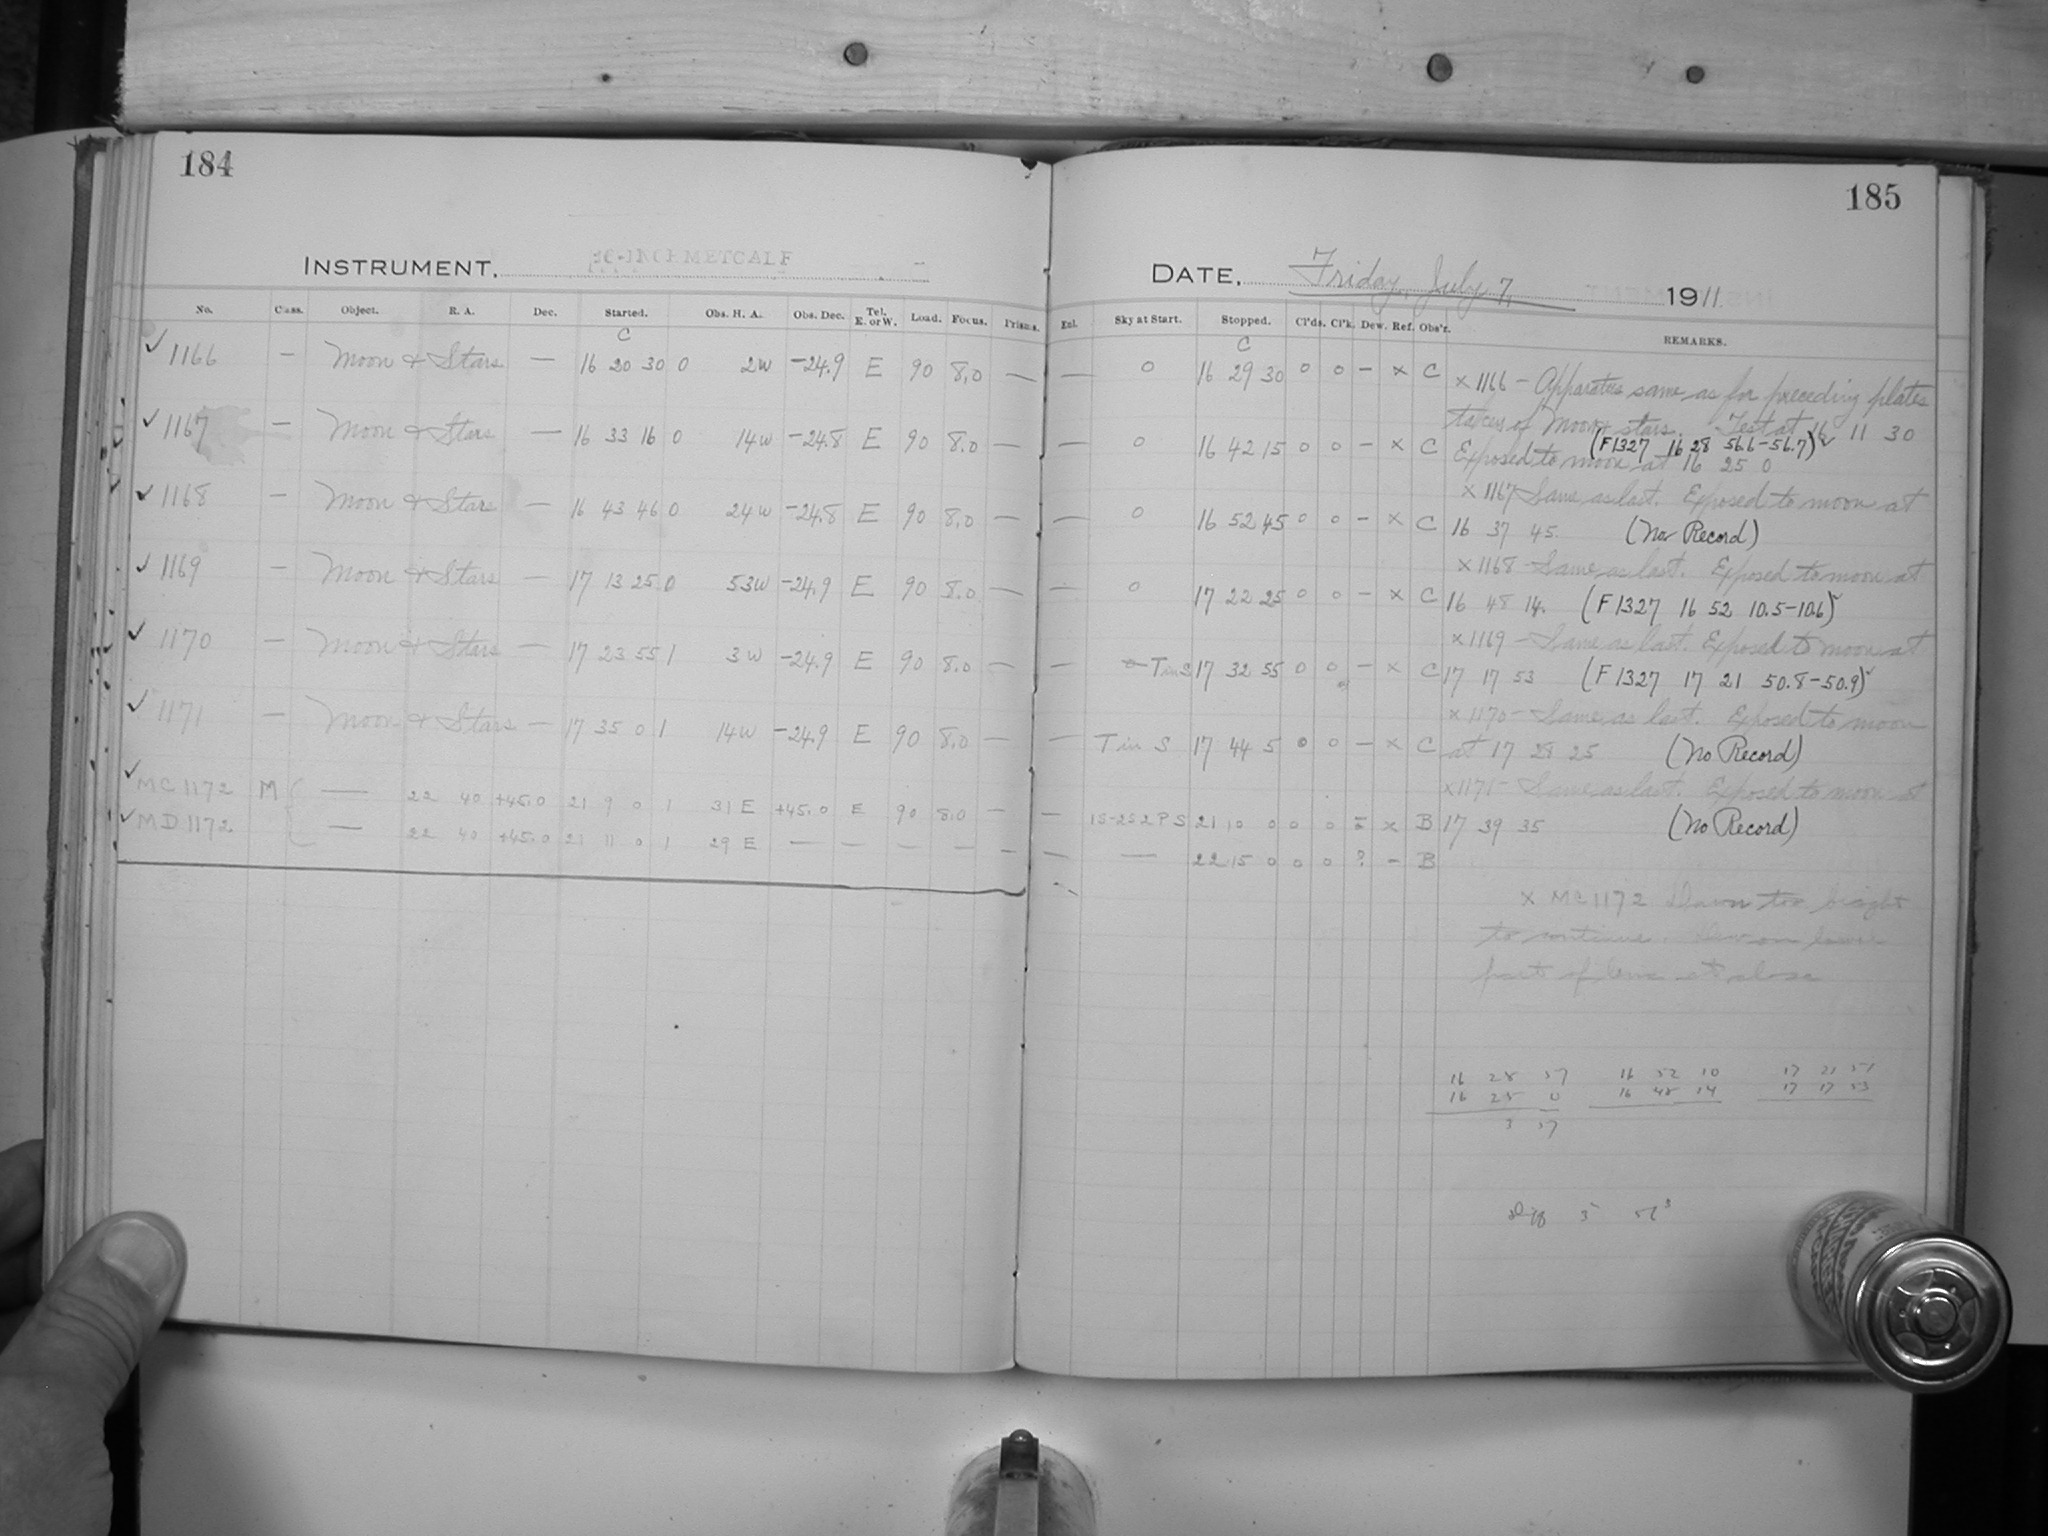 184
INSTRUMENT, METCALF
No. Class. Object. R. A. Dec. Started. Obs. H. A. Obs. Dec. Tel. E. or W. Load. Focus. Prisms.
C
✓ 1166 — Moon & Stars — 16 20 30 0 2W −24.9 E 90 8.0 —
✓ 1167 — Moon & Stars — 16 33 16 0 14W −24.8 E 90 8.0 —
✓ 1168 — Moon & Stars — 16 43 46 0 24W −24.8 E 90 8.0 —
✓ 1169 — Moon & Stars — 17 13 25 0 53W −24.9 E 90 8.0 —
✓ 1170 — Moon & Stars — 17 23 55 1 3W −24.9 E 90 8.0 —
✓ 1171 — Moon & Stars — 17 35 0 1 14W −24.9 E 90 8.0 —
✓ MC 1172 M — 22 40 +45.0 21 9 0 1 31 E +45.0 E 90 8.0 —
✓ MD 1172 — 22 40 +45.0 21 11 0 1 29 E — — — — —
185
DATE, Friday, July 7, 1911
Enl. Sky at Start. Stopped. Cl'ds. Cl'k. Dew. Ref. Obs'r. REMARKS.
C
— 0 16 29 30 0 0 — x C
— 0 16 42 15 0 0 — x C
— 0 16 52 45 0 0 — x C
— 0 17 22 25 0 0 — x C
— T in S 17 32 55 0 0 — x C
— T in S 17 44 5 0 0 — x C
— 1S-2S 2PS 21 10 0 0 0 x B
— — 22 15 0 0 0 ? – B
x 1166 — Apparatus same as for preceding plates
taken of Moon & stars. Test at 16 11 30
(F1327 16 28 56.6–56.7) ✓
Exposed to moon at 16 25 0
x 1167 Same as last. Exposed to moon at
16 37 45. (No Record)
x 1168 – Same as last. Exposed to moon at
16 48 14. (F1327 16 52 10.5–10.6) ✓
x 1169 – Same as last. Exposed to moon at
17 17 53 (F1327 17 21 50.8–50.9) ✓
x 1170 – Same as last. Exposed to moon
at 17 28 25 (No Record)
x 1171 – Same as last. Exposed to moon at
17 39 35 (No Record)
x MC 1172 Dawn too bright
to continue. Dew on lower
part of lens at close
16 28 57 16 52 10 17 21 51
16 25 0 16 48 14 17 17 53
3 57